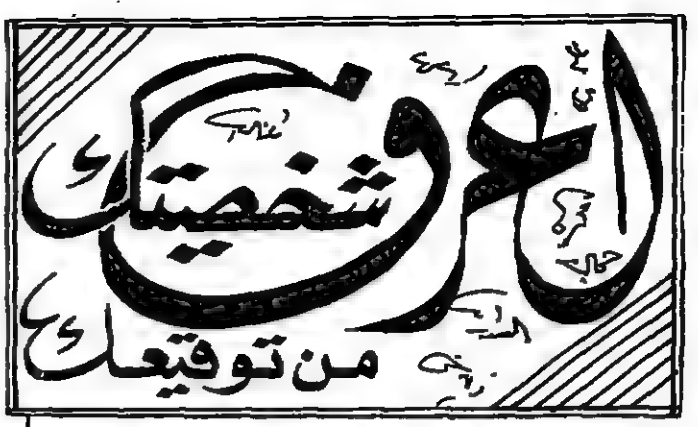 اعرف
شخصيتك
من توقيعك